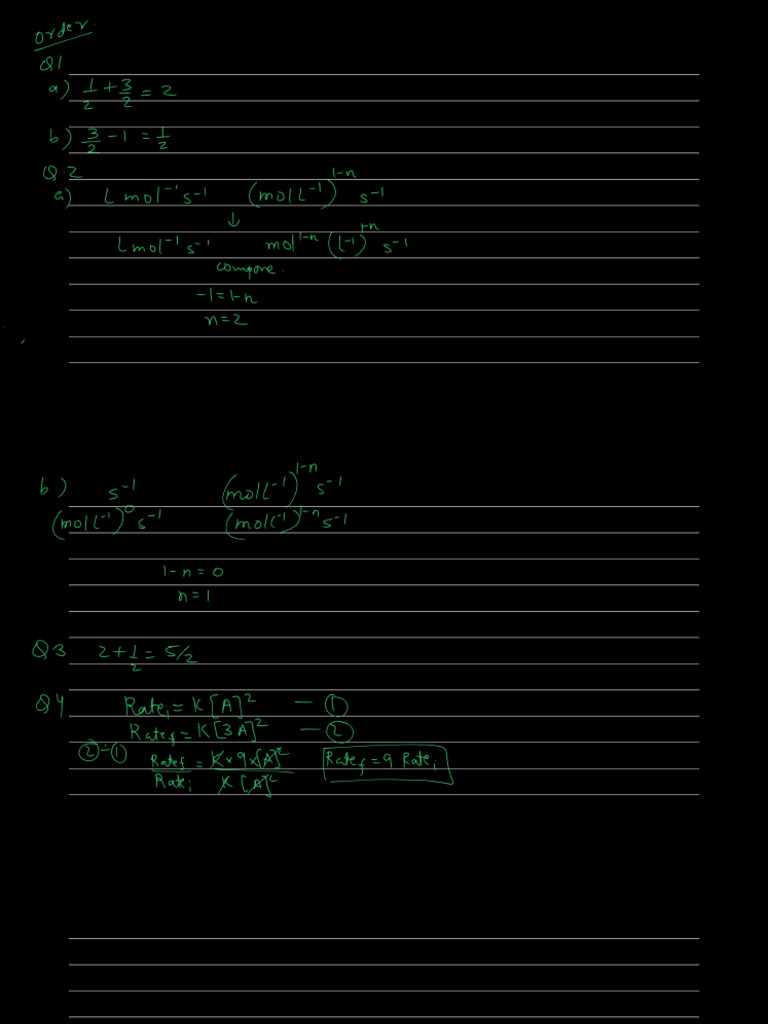 Order.
Q1
a) 1/2 + 3/2 = 2
b) 3/2 - 1 = 1/2
Q.2
a) L mol⁻¹ s⁻¹ (mol L⁻¹)¹⁻ⁿ s⁻¹
↓
L mol⁻¹ s⁻¹ mol¹⁻ⁿ (L⁻¹)¹⁻ⁿ s⁻¹
compare.
-1 = 1-n
n = 2
b) s⁻¹ (mol L⁻¹)¹⁻ⁿ s⁻¹
(mol L⁻¹)⁰ s⁻¹ (mol L⁻¹)¹⁻ⁿ s⁻¹
1-n = 0
n = 1
Q3 2 + 1/2 = 5/2
Q4 Rateᵢ = K [A]² — ①
Rate_f = K [3A]² — ②
② ÷ ① Rate_f / Rateᵢ = K × 9 × [A]² / K [A]² Rate_f = 9 Rateᵢ